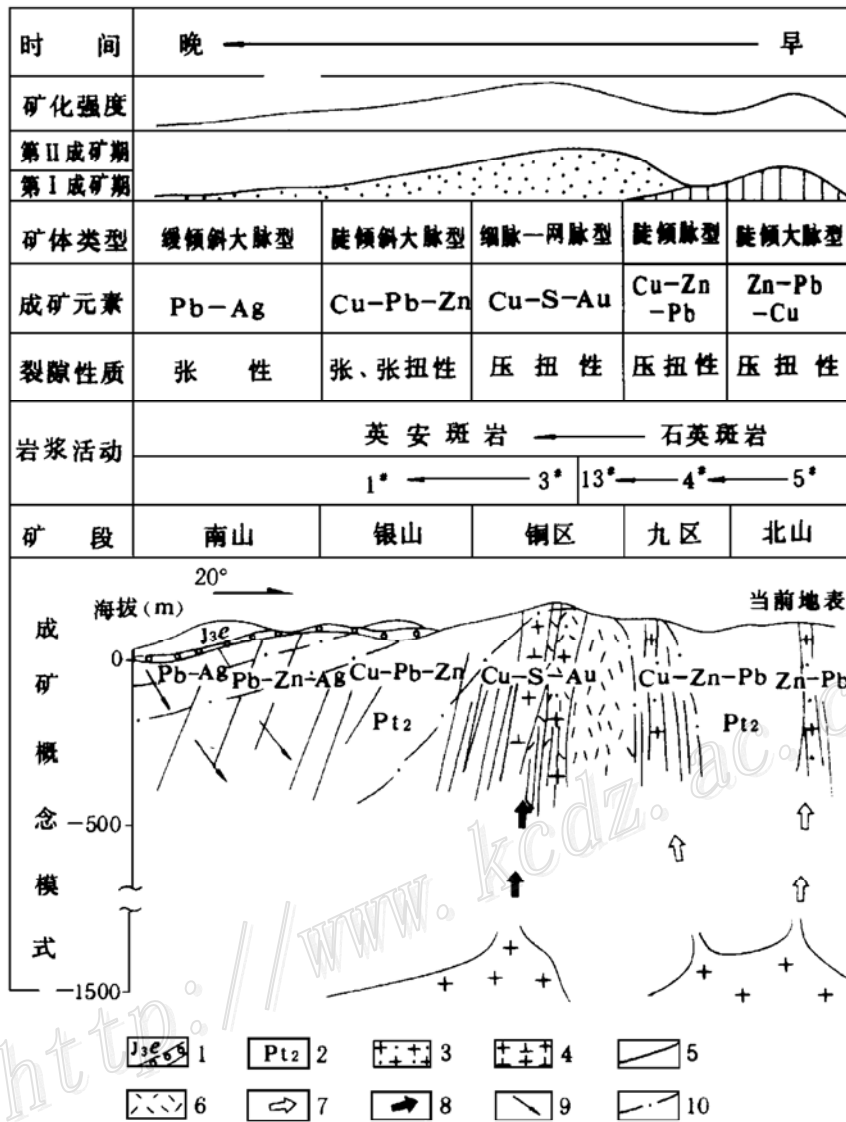 时 间 晚 早
矿化强度
第II成矿期
第I成矿期
矿体类型 缓倾斜大脉型 陡倾斜大脉型 细脉—网脉型 陡倾脉型 陡倾大脉型
成矿元素 Pb-Ag Cu-Pb-Zn Cu-S-Au Cu-Zn-Pb Zn-Pb-Cu
裂隙性质 张 性 张、张扭性 压 扭 性 压扭性 压 扭 性
岩浆活动 英安斑岩 石英斑岩
1# 3# 13# 4# 5#
矿 段 南山 银山 铜区 九区 北山
成矿概念模式
20°
海拔(m) 当前地表
J₃e
0
Pb-Ag Pb-Zn-Ag Cu-Pb-Zn Cu-S-Au Cu-Zn-Pb Zn-Pb
Pt₂ Pt₂
-500
-1500
J₃e 1 Pt₂ 2 3 4 5
6 7 8 9 10
http://www.kcdz.ac.c